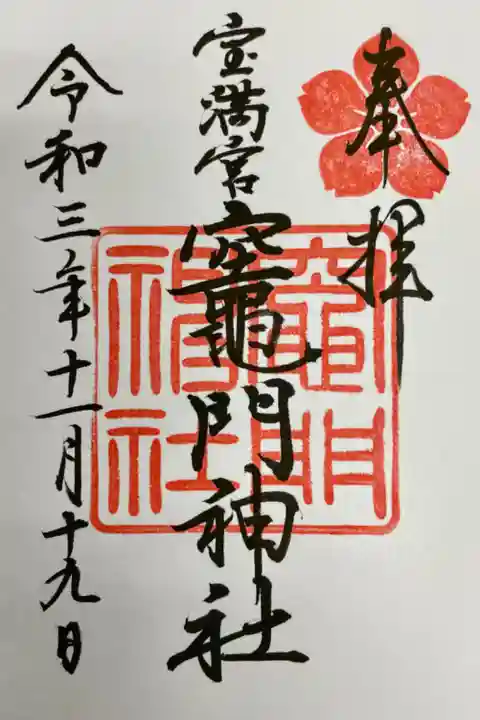 奉拝
宝満宮
竈門神社
竈門神社
令和三年十一月十九日